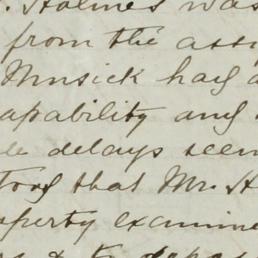 . Holmes was
from the assi
Musick had a
apability and
le delays seem
tood that Mr. H
operty examine